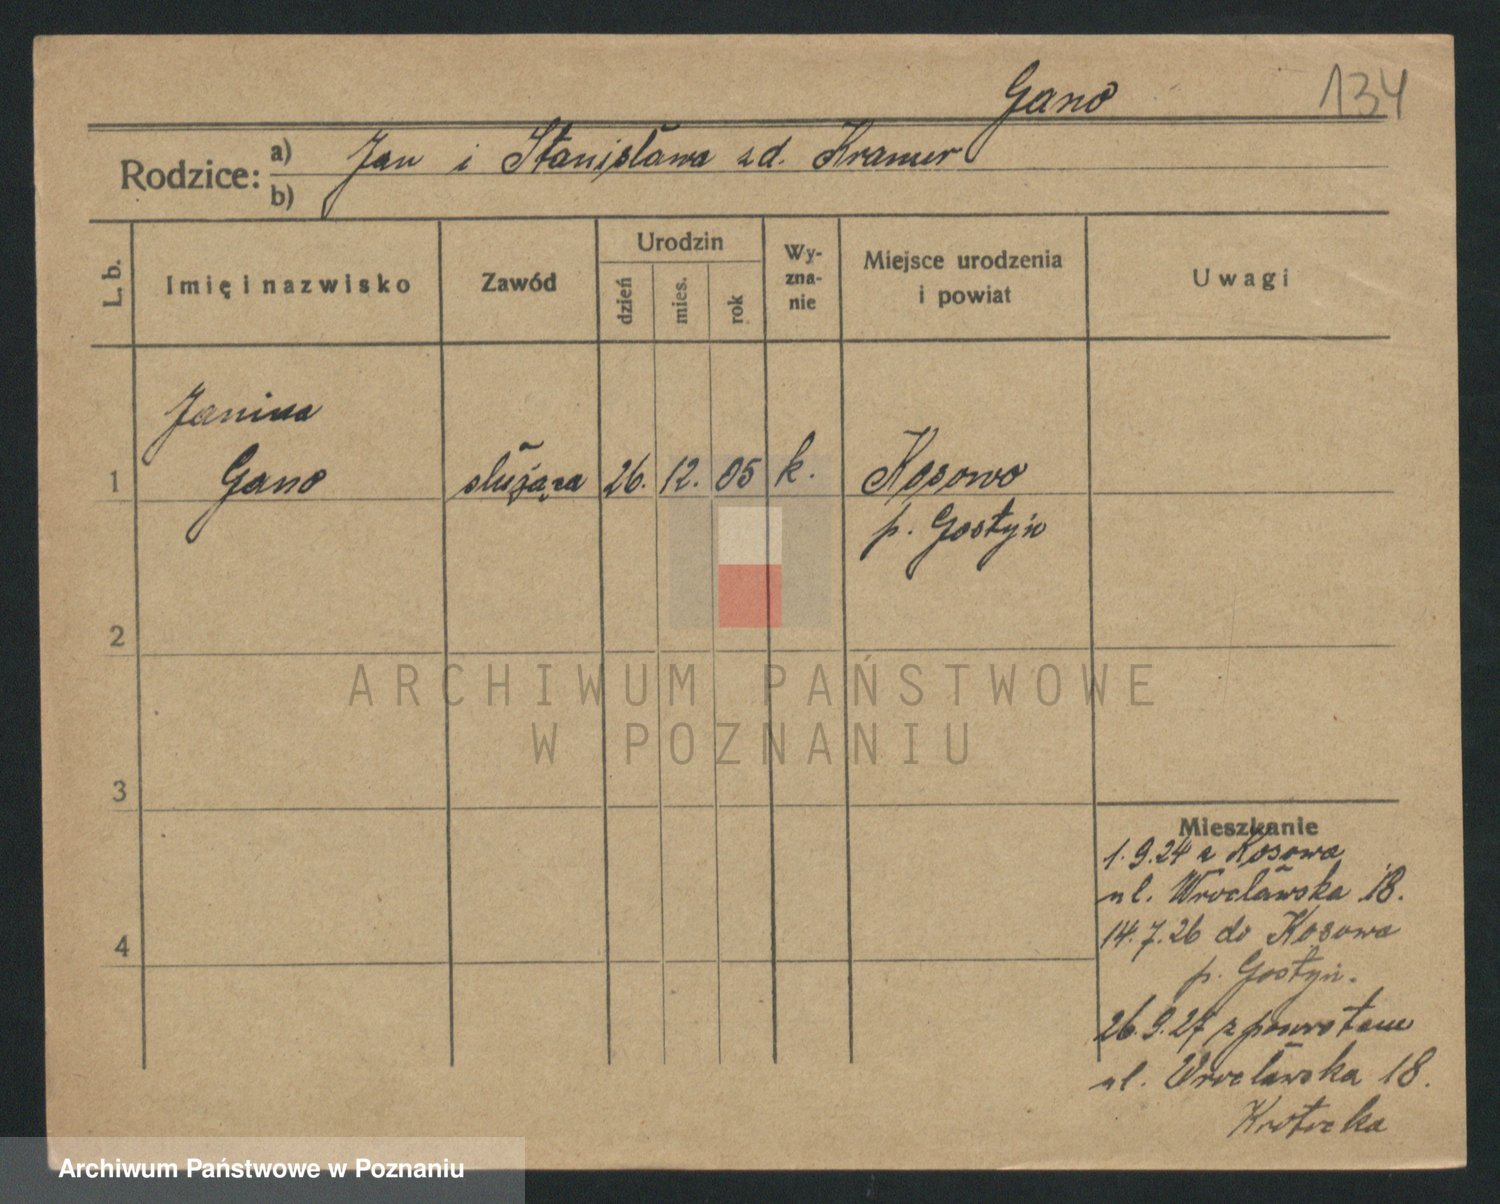 Gano
134
Rodzice:
a) Jan i Stanisława zd. Kramer
b)
L. b.
Imię i nazwisko
Zawód
Urodzin
dzień
mies.
rok
Wy-
zna-
nie
Miejsce urodzenia
i powiat
Uwagi
Janina
1 Gano służąca 26. 12. 05 k. Kosowo
p. Gostyń
2
3
4
Mieszkanie
1.9.24 z Kosowa
ul. Wrocławska 18.
14.7.26 do Kosowa
p. Gostyń.
26.9.27 z powrotem
ul. Wrocławska 18.
ARCHIWUM PAŃSTWOWE
W POZNANIU
Archiwum Państwowe w Poznaniu